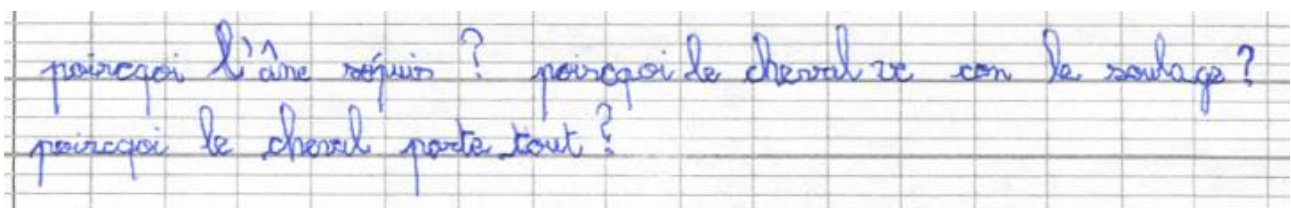 poircqoi l'âne sépuis ? poircqoi le cheval ve con le soulage ?
poircqoi le cheval porte tout ?